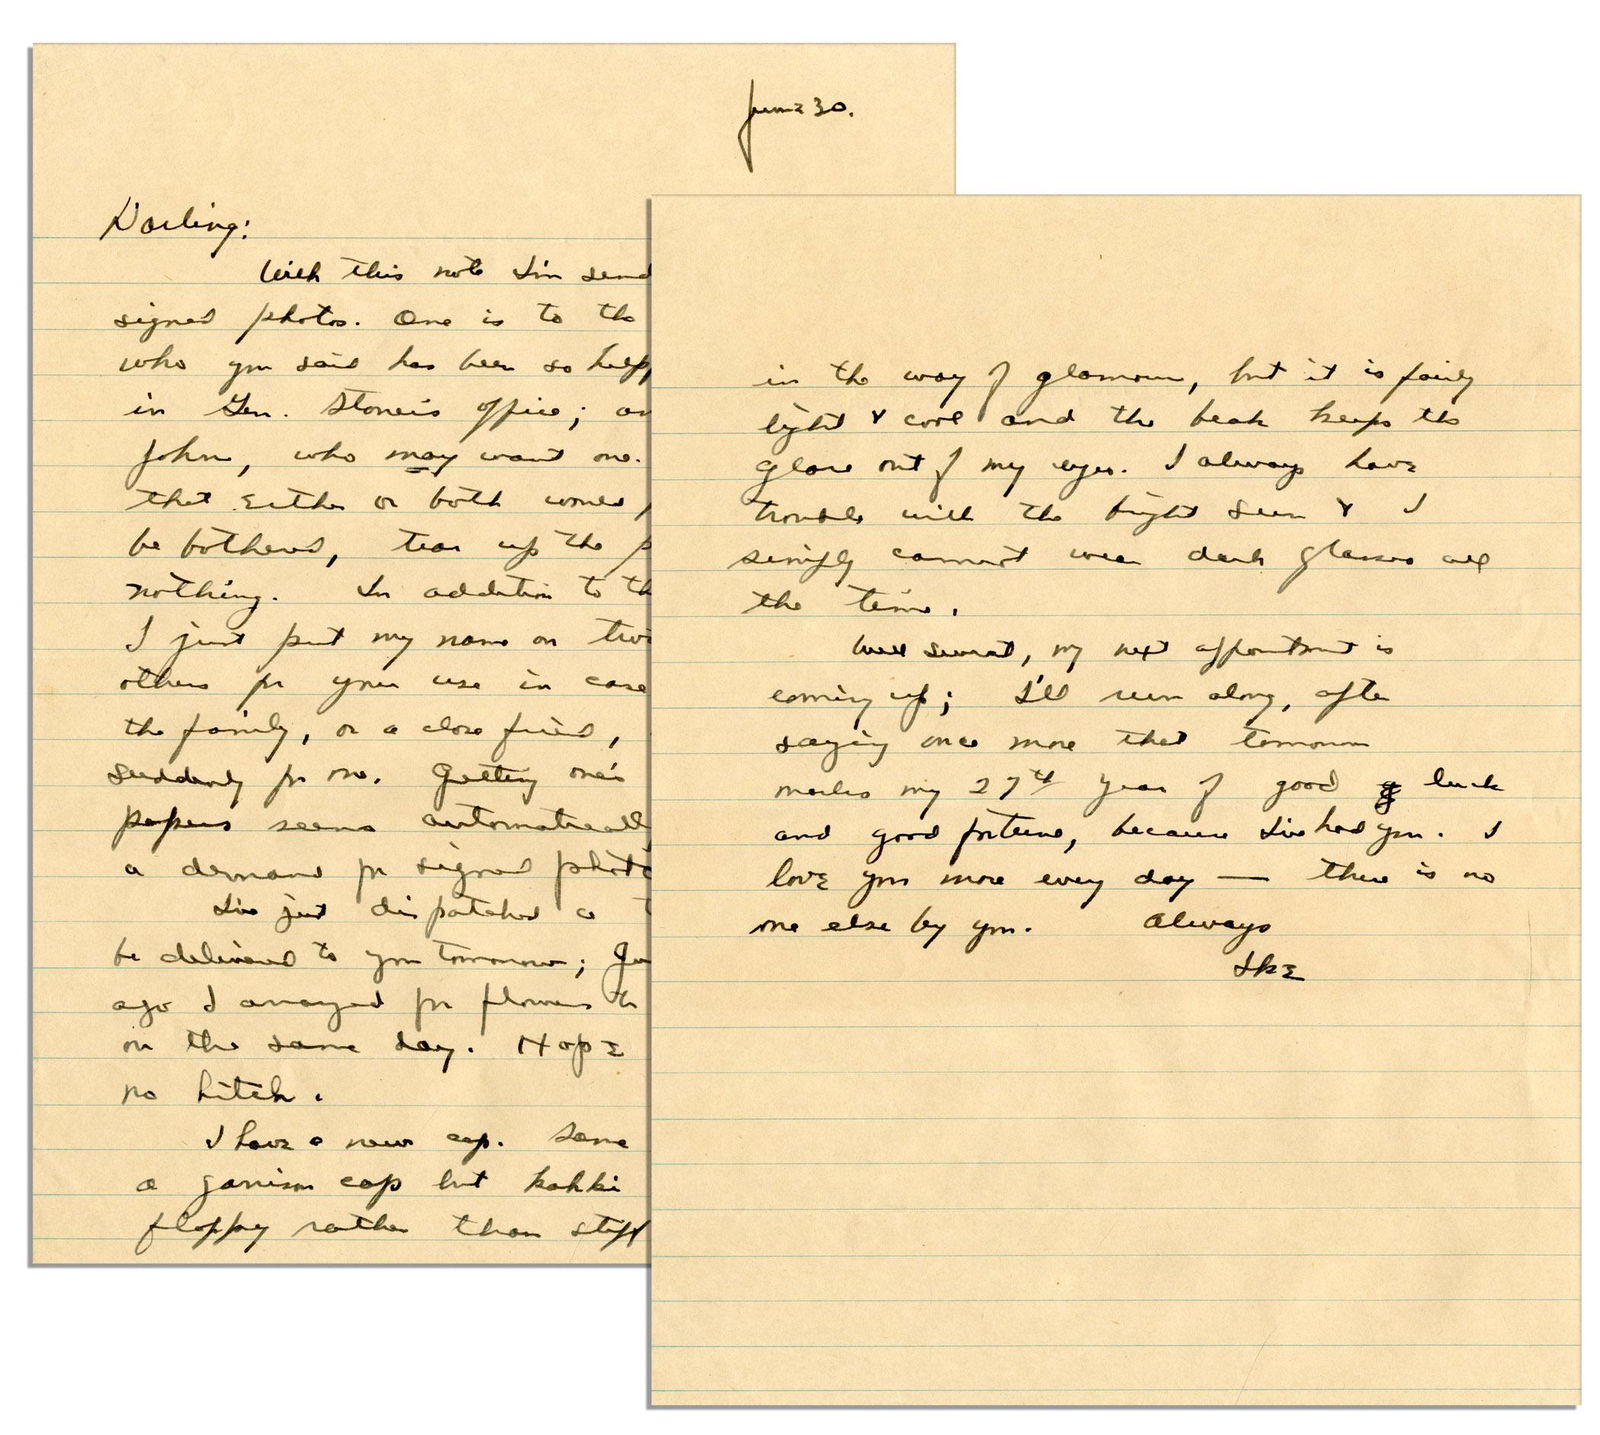 June 30.
Darling:
With this note I'm send
signed photos. One is to the
who you said has been so help
in Gen. Stoner's office; an
John, who may want one.
that either or both would
be bothered, tear up the p
nothing. In addition to th
I just put my name on two
others for your use in case
the family, or a close friend,
suddenly for one. Getting one's
papers seems automatically
a demand for signed photo
I've just dispatched a t
be delivered to you tomorrow;
ago I arranged for flowers to
on the same day. Hope
no hitch.
I have a new cap. Same
a garrison cap but kahki
floppy rather than stiff
in the way of glamour, but it is fairly
light & cool and the beak keeps the
glare out of my eyes. I always have
trouble with the bright sun & I
simply cannot wear dark glasses all
the time.
Well sweet, my next appointment is
coming up; I'll run along, after
saying once more that tomorrow
marks my 27th year of good luck
and good fortune, because I've had you. I
love you more every day — there is no
one else by you. Always
Ike